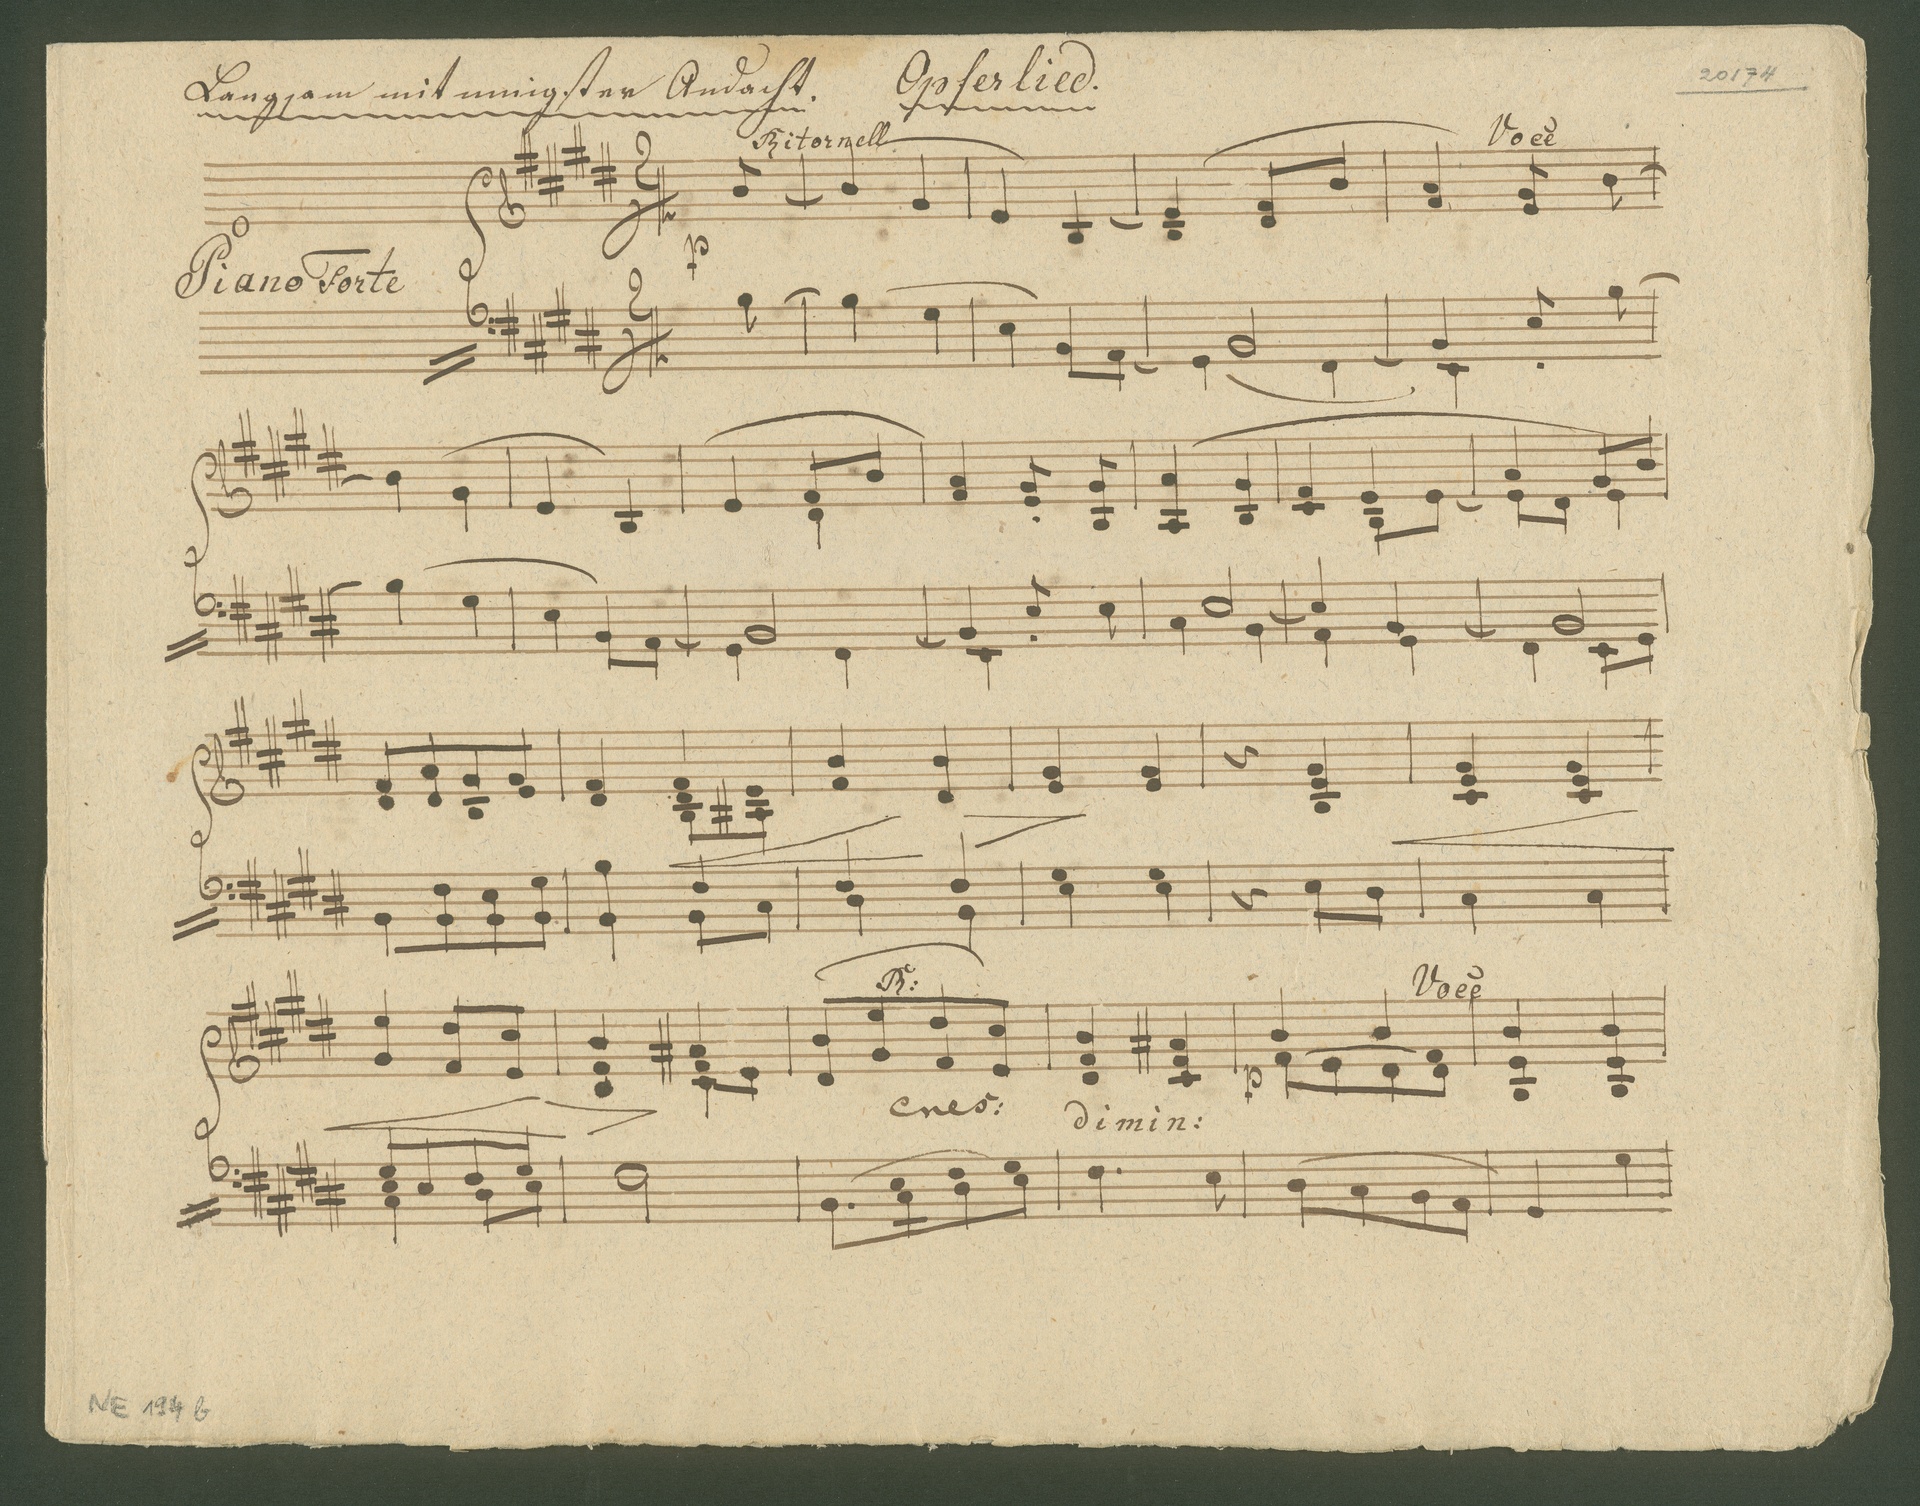 Langsam mit innigster Andacht. Opferlied.
20174
Ritornell
Voce
p
Piano Forte
R:
Voce
p
cres:
dimin:
NE 194 b